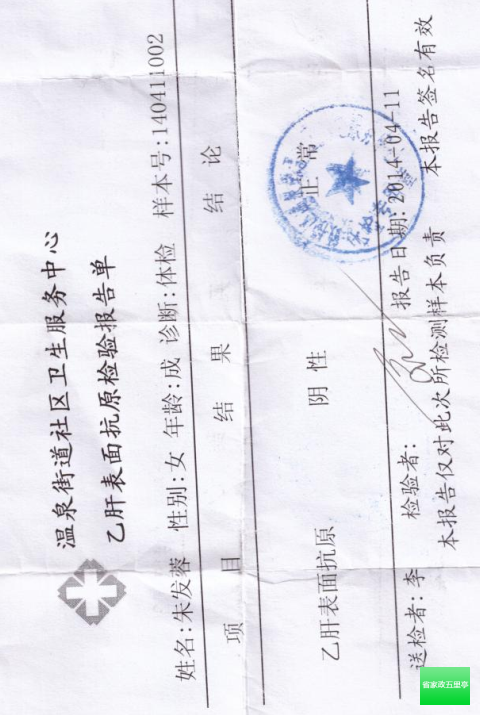 温泉街道社区卫生服务中心
乙肝表面抗原检验报告单
姓名:朱发蓉 性别:女 年龄:成 诊断:体检 样本号:140411002
项 目 结 果 结 论
乙肝表面抗原 阴 性 正 常
送检者:李 检验者: 报告日期:2014-04-11
本报告仅对此次所检测样本负责 本报告签名有效
省家政五里亭